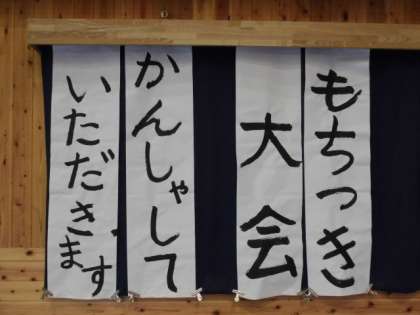 もちつき
大会
かんしゃして
いただきます